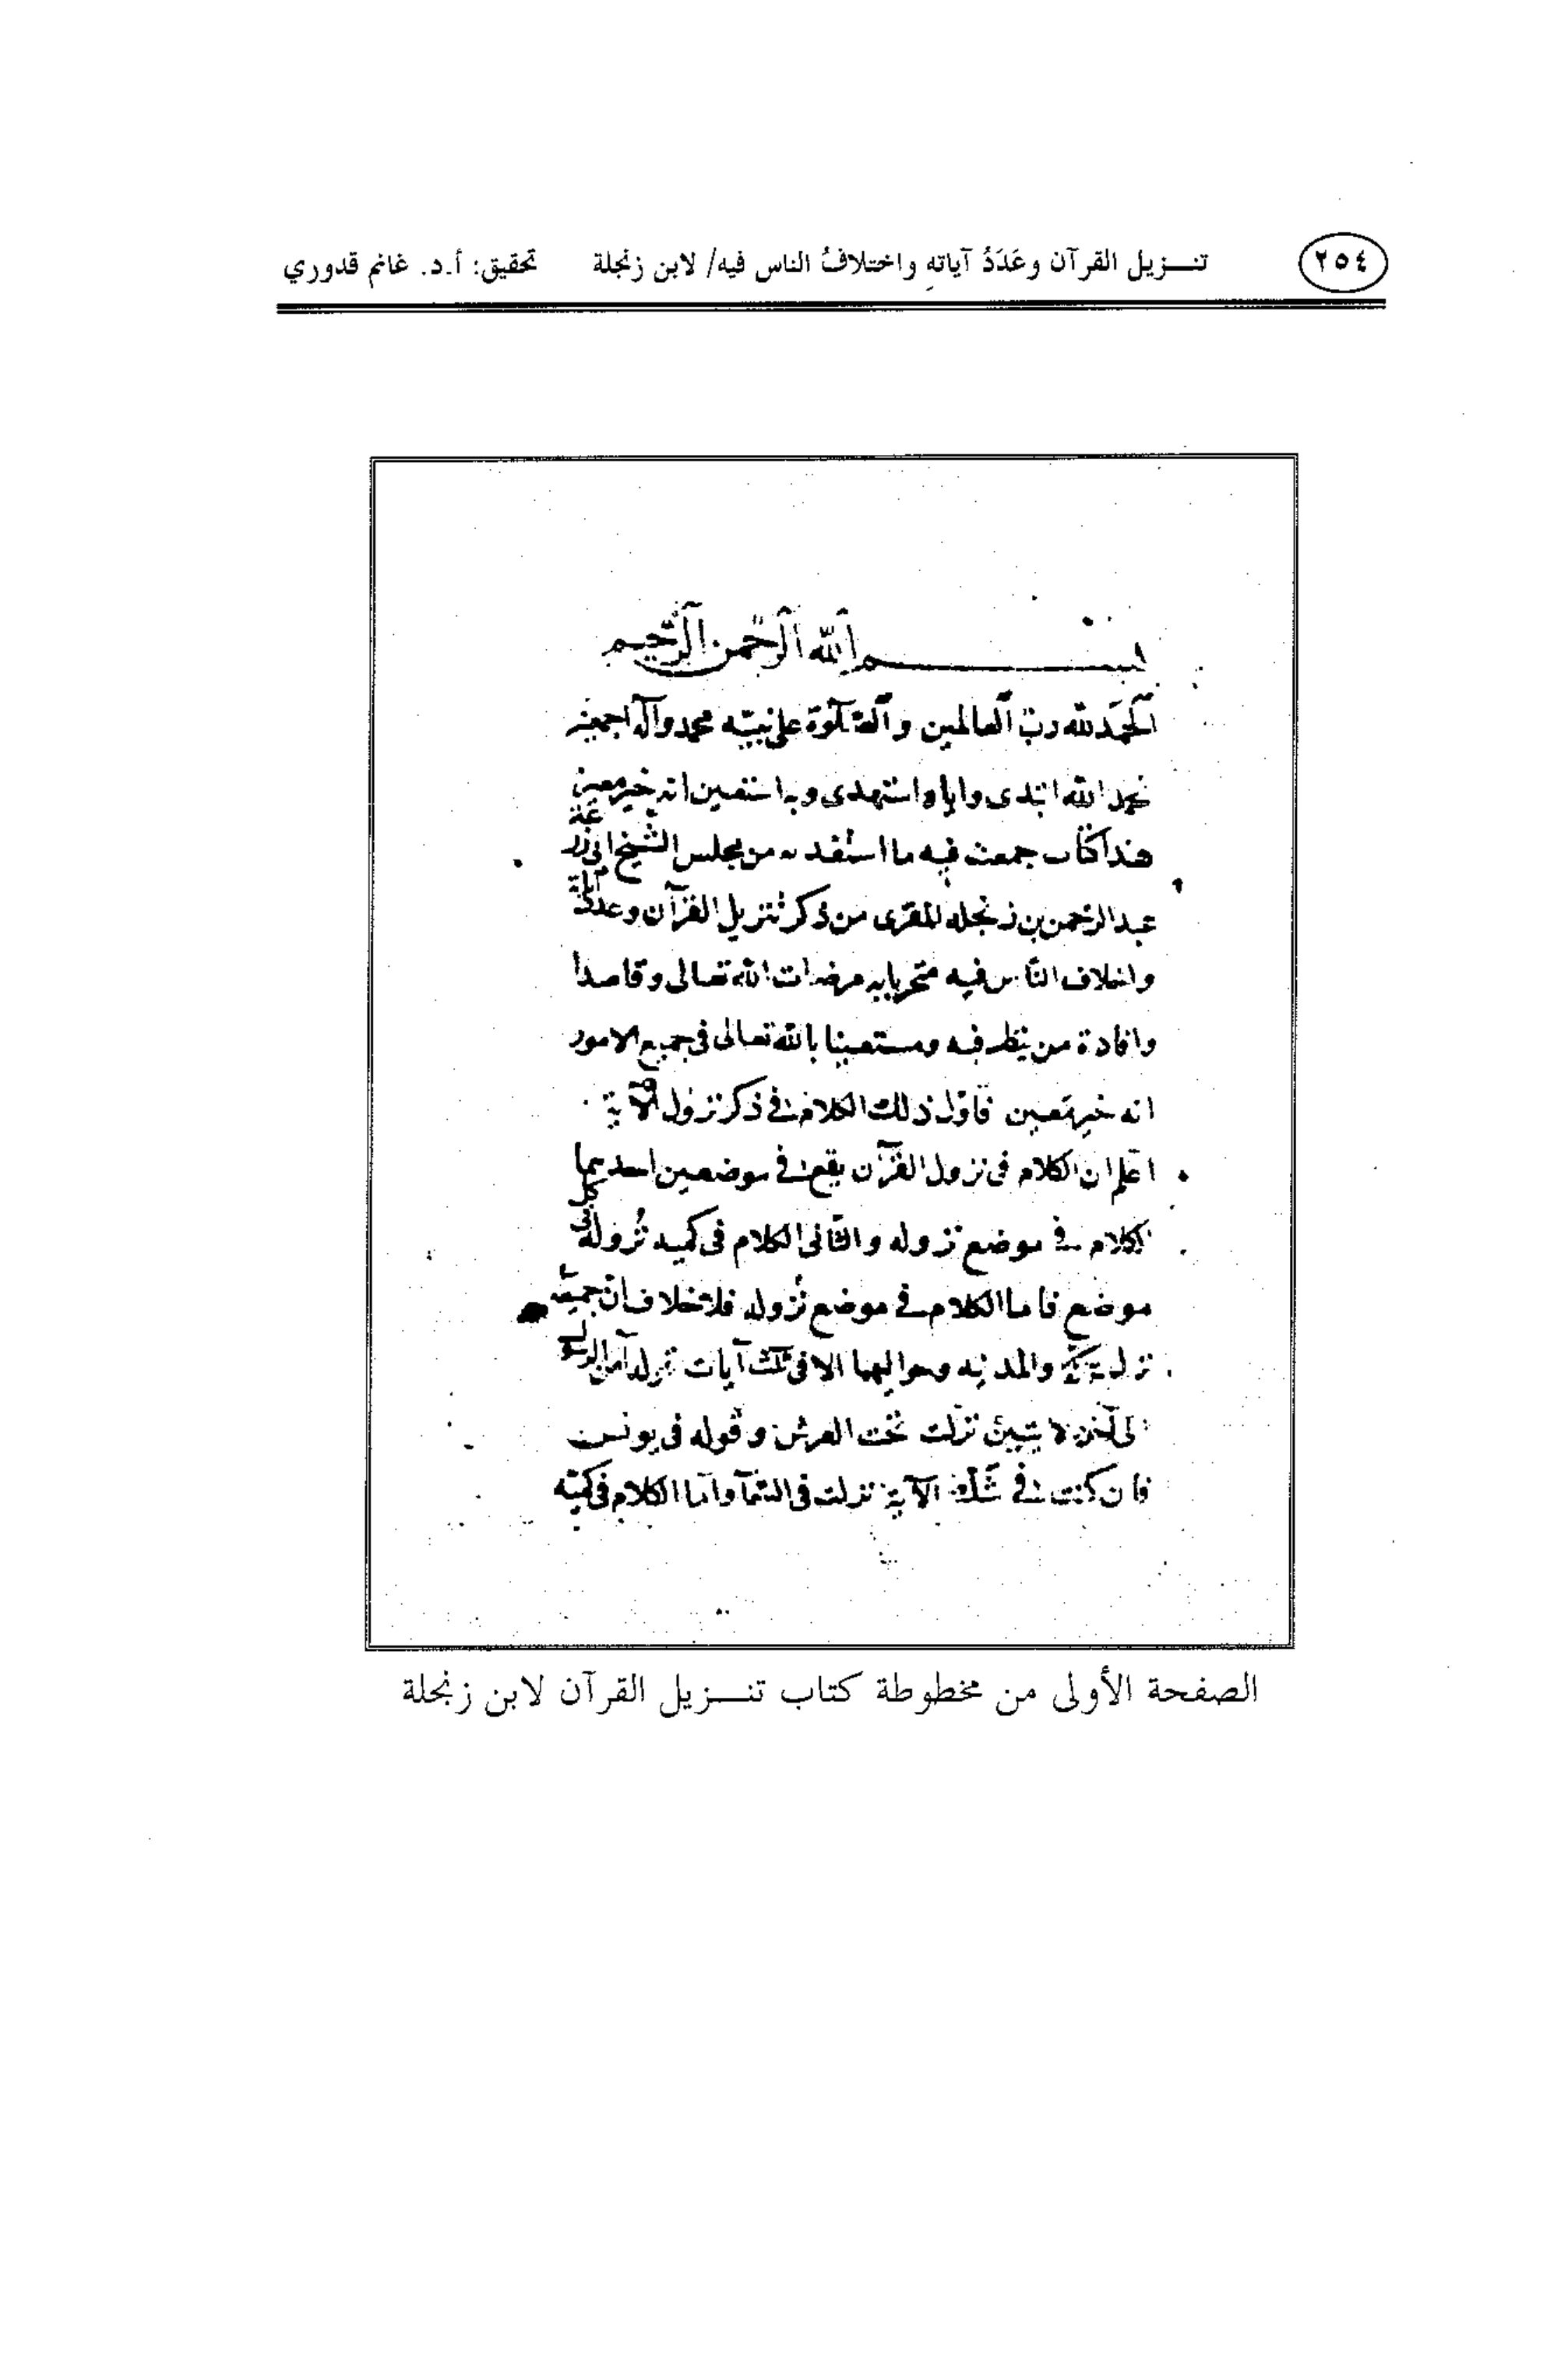 ٢٥٤ تنـزيل القرآن وعَدَدُ آياتهِ واختلافُ الناس فيه/ لابن زنجلة تحقيق: أ.د. غانم قدوري
بسم الله الرحمن الرحيم
الحمد لله ربّ العالمين والصّلوة على نبيّه محمد وآله اجمعين
بحمد الله ابتدى واياه استهدى وبه استعين انه خير معين
هذا كتاب جمعت فيه ما استفدته من مجلس الشيخ ابى زرعة
عبد الرحمن بن زنجله المقرى من ذكر تنزيل القرآن وعدد آياته
واختلاف النّاس فيه متحريا به مرضات الله تعالى وقاصدا
وافادة من ينظر فيه ومستعينا بالله تعالى فى جميع الامور
انه خير معين فاوّل ذلك الكلام فى ذكر نزول
اعلم ان الكلام فى نزول القرآن يقع فى موضعين احديهما
الكلام فى موضع نزوله والثّانى الكلام فى كميه نزوله فى كل
موضع فاما الكلام فى موضع نزوله فلا خلاف انّ جميعه
نزل بمكة والمدينه وحواليهما الا فى ثلث آيات قوله آمن الرسول
الى آخره لا نزلت تحت العرش وقوله فى يونس
فان كنت فى شك الآية نزلت فى السّمآ وامّا الكلام فى كميّه
الصفحة الأولى من مخطوطة كتاب تنـزيل القرآن لابن زنجلة